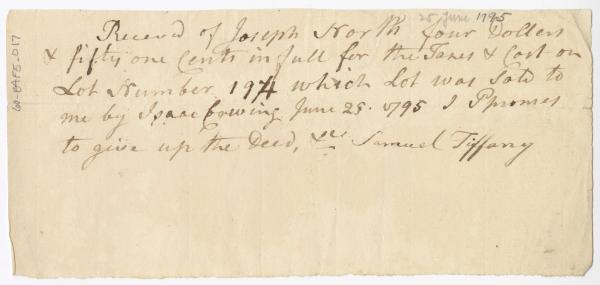 25 June 1795
Received of Joseph North four Dollars
& fifty one Cents in full for the Taxes & Cost on
Lot Number 194 which Lot was Sold to
me by Isaac Cowing June 25. 1795 I Ppromes
to give up the Deed, &c Samuel Tiffany